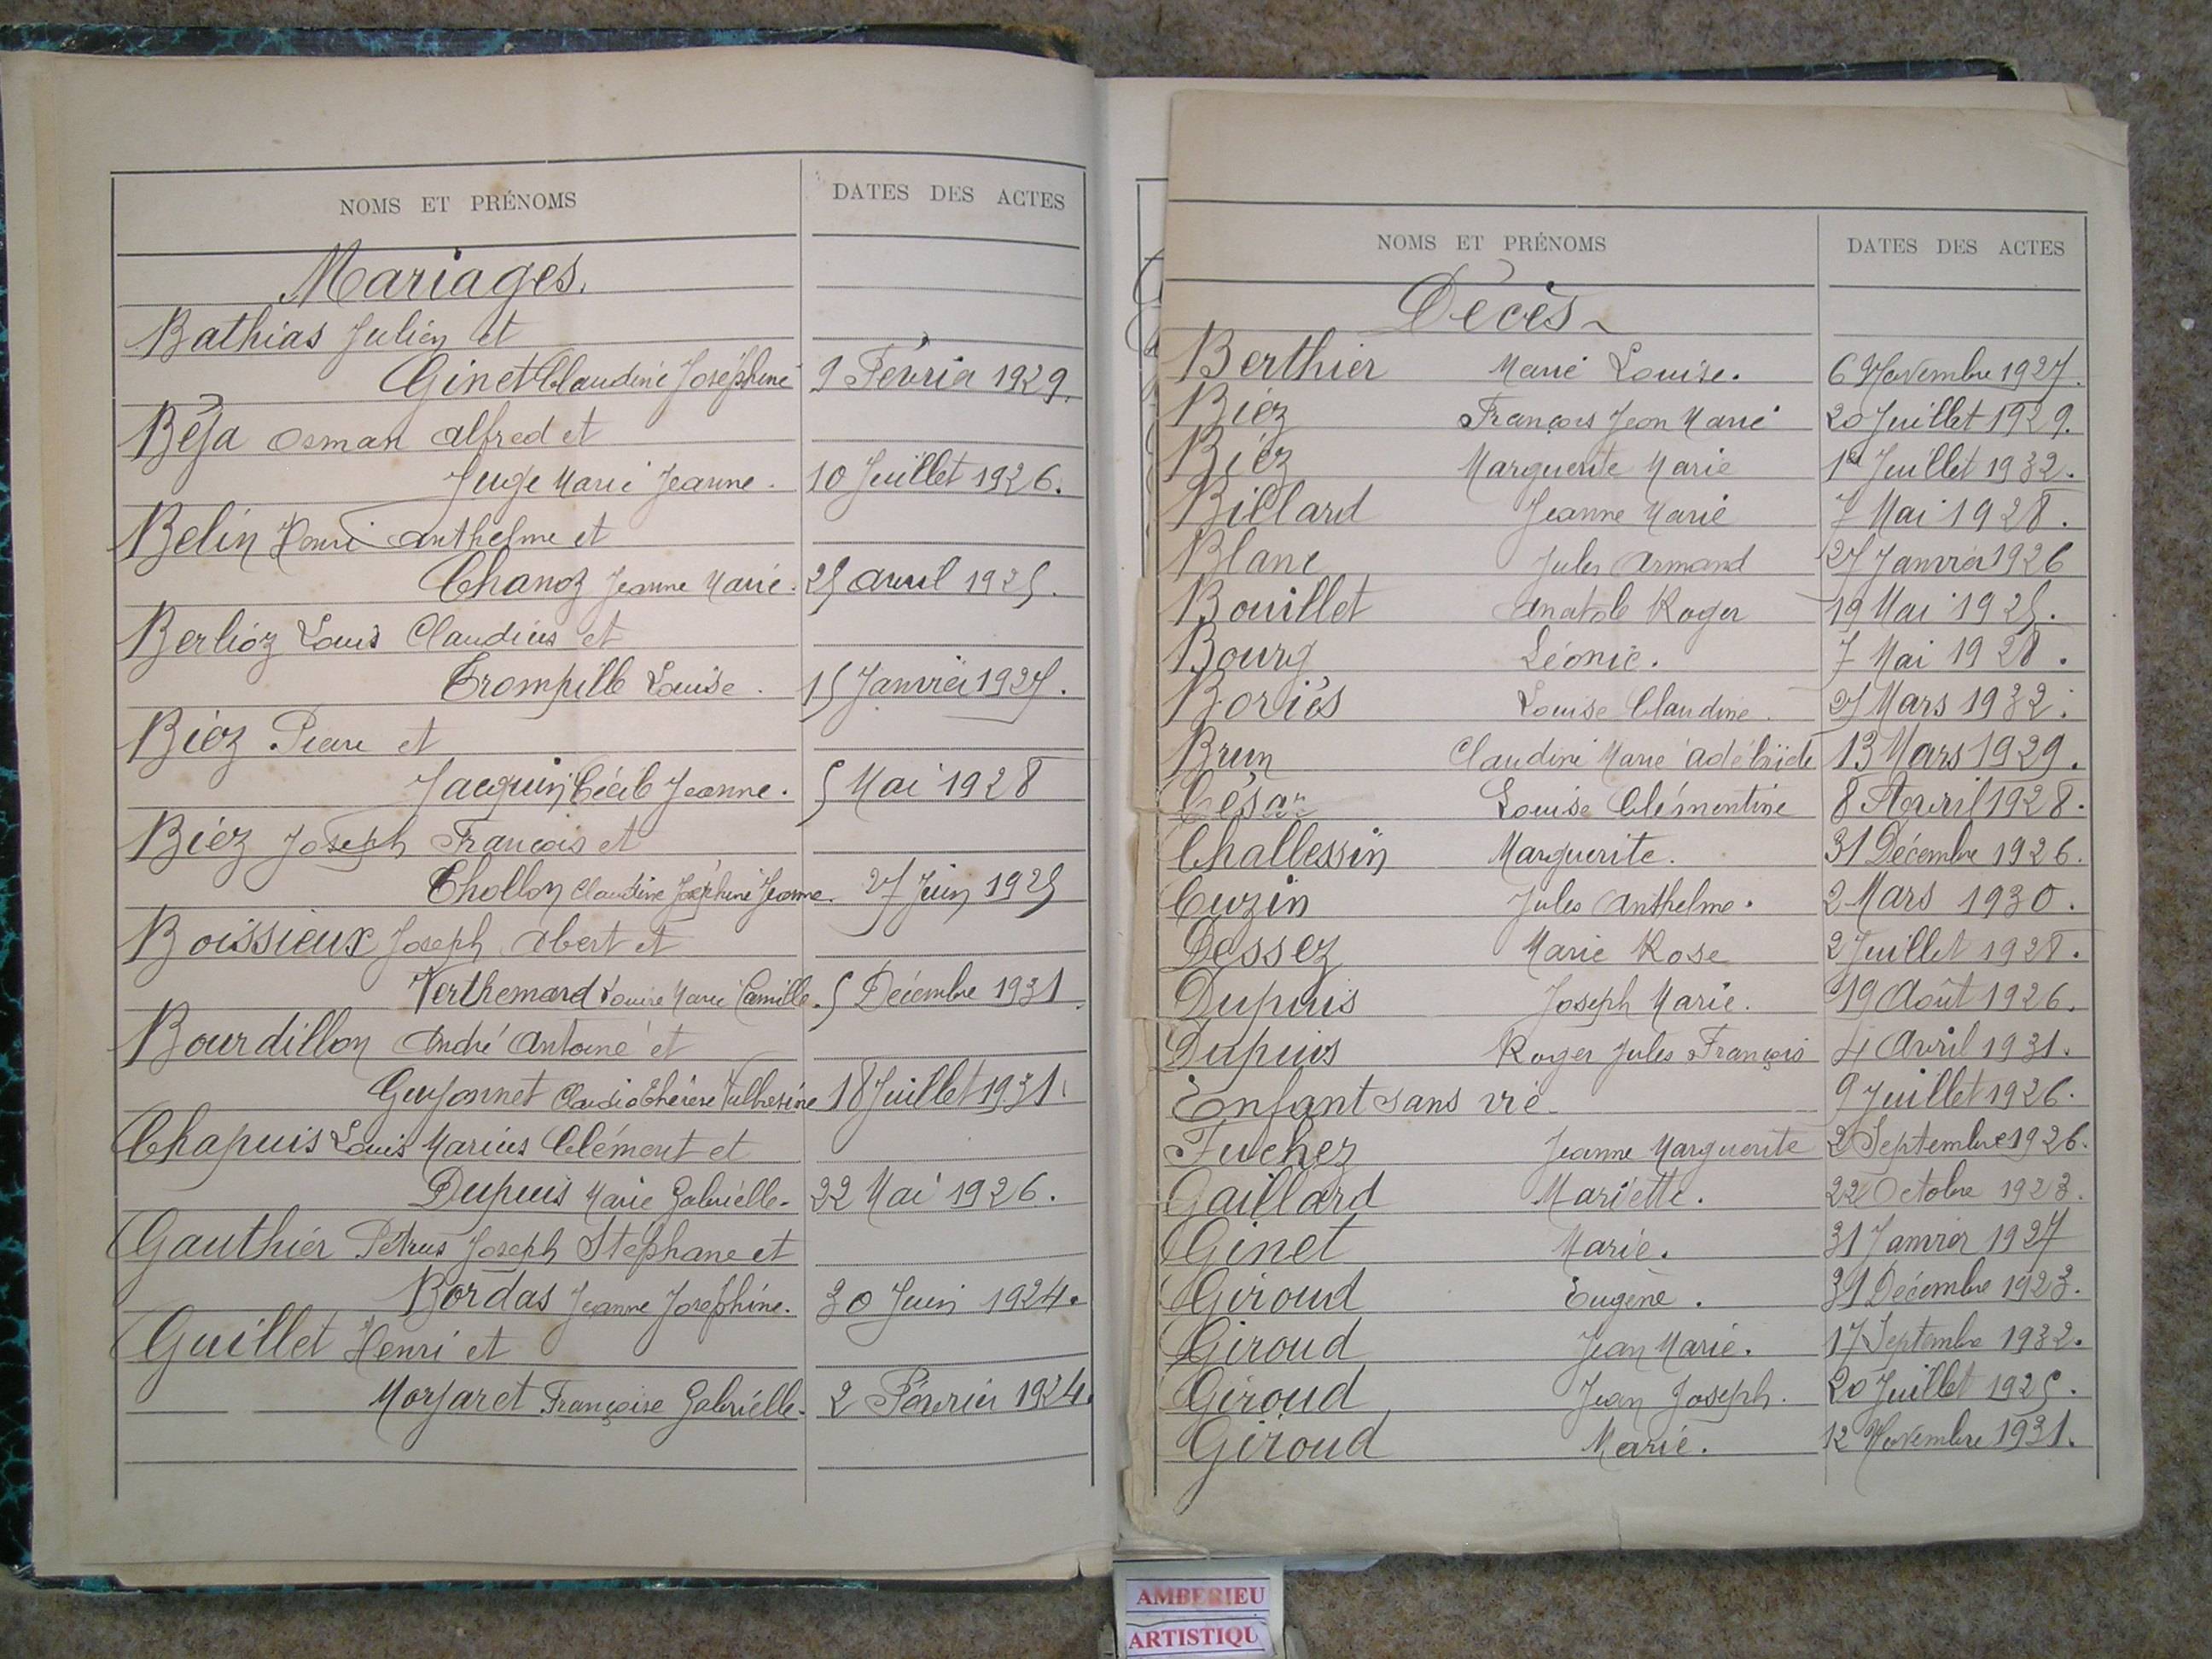 NOMS ET PRÉNOMS DATES DES ACTES
Mariages.
Bathias Julien et
Ginet Claudine Joséphine 9 Février 1929.
Béja Osman Alfred et
Juge Marie Jeanne. 10 Juillet 1926.
Belin Henri Anthelme et
Chanoz Jeanne Marie. 25 Avril 1925.
Berlioz Louis Claudius et
Trompille Louise. 15 Janvier 1927.
Biez Pierre et
Jacquin Cécile Jeanne. 5 Mai 1928
Biez Joseph François et
Chollon Claudine Joséphine Jeanne. 27 Juin 1925
Boissieux Joseph Albert et
Verthemard Louise Marie Camille. 5 Décembre 1931.
Bourdillon André Antoine et
Guyonnet Thérèse 18 Juillet 1931.
Chapuis Louis Marius Clément et
Dupuis Marie Gabrielle. 22 Mai 1926.
Gauthier Pétrus Joseph Stéphane et
Bordas Jeanne Joséphine. 30 Juin 1924.
Guillet Henri et
Morgaret Françoise Gabrielle. 2 Février 1924.
NOMS ET PRÉNOMS DATES DES ACTES
Décès
Berthier Marie Louise. 6 Novembre 1927.
Biéz François Jean Marie 20 Juillet 1929.
Biéz Marguerite Marie 1er Juillet 1932.
Billard Jeanne Marie 7 Mai 1928.
Blanc Jules Armand 27 Janvier 1926
Bouillet Anatole Roger 19 Mai 1925.
Bourg Léonie. 7 Mai 1928.
Boriès Louise Claudine. 27 Mars 1932.
Brun Claudine Marie Adélaïde 13 Mars 1929.
César Louise Clémentine 8 Avril 1928.
Challessin Marguerite. 31 Décembre 1926.
Cuzin Jules Anthelme. 2 Mars 1930.
Dessez Marie Rose 2 Juillet 1928.
Dupuis Joseph Marie. 19 Août 1926.
Dupuis Roger Jules François 4 Avril 1931.
Enfant sans vie 9 Juillet 1926.
Fuchez Jeanne Marguerite 2 Septembre 1926.
Gaillard Mariette. 22 Octobre 1923.
Ginet Marie. 31 Janvier 1927
Giroud Eugène. 31 Décembre 1923.
Giroud Jean Marie. 17 Septembre 1932.
Giroud Jean Joseph. 20 Juillet 1925.
Giroud Marie. 12 Novembre 1931.
AMBERIEU
ARTISTIQU